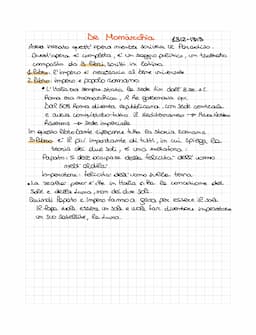 De Monarchia 1312-1313
Aveva iniziato quest'opera mentre scriveva il Paradiso.
Quest'opera è completa, è un saggio politico, un trattato
composto da 3 libri scritti in latino.
1 libro: l'impero è necessario al bene universale
2 libro: impero e popolo romano
L'Italia era sempre stata la sede fin dall'
Roma era monarchica, 7 Re governava qui
Dal 509 Roma diventa repubblicana, con sede centrale
e aveva conquistato tutto il Mediterraneo → 
→ sede imperiale
In questo libro Dante ripercorre tutta la storia romana.
3 libro: è il più importante di tutti, in cui spiega la
teoria dei due soli, è una metafora:
Papato: si deve occupare della felicità dell'uomo
nell'aldilà
Imperatore: felicità dell'uomo sulla terra
La realtà però è che in Italia c'è la concezione del
Sole e della Luna, non dei due soli
Quindi Papato e Impero fanno a gara per essere il sole
Il Papa vuole essere un sole e vuole far diventare imperatore
un suo satellite, la luna.